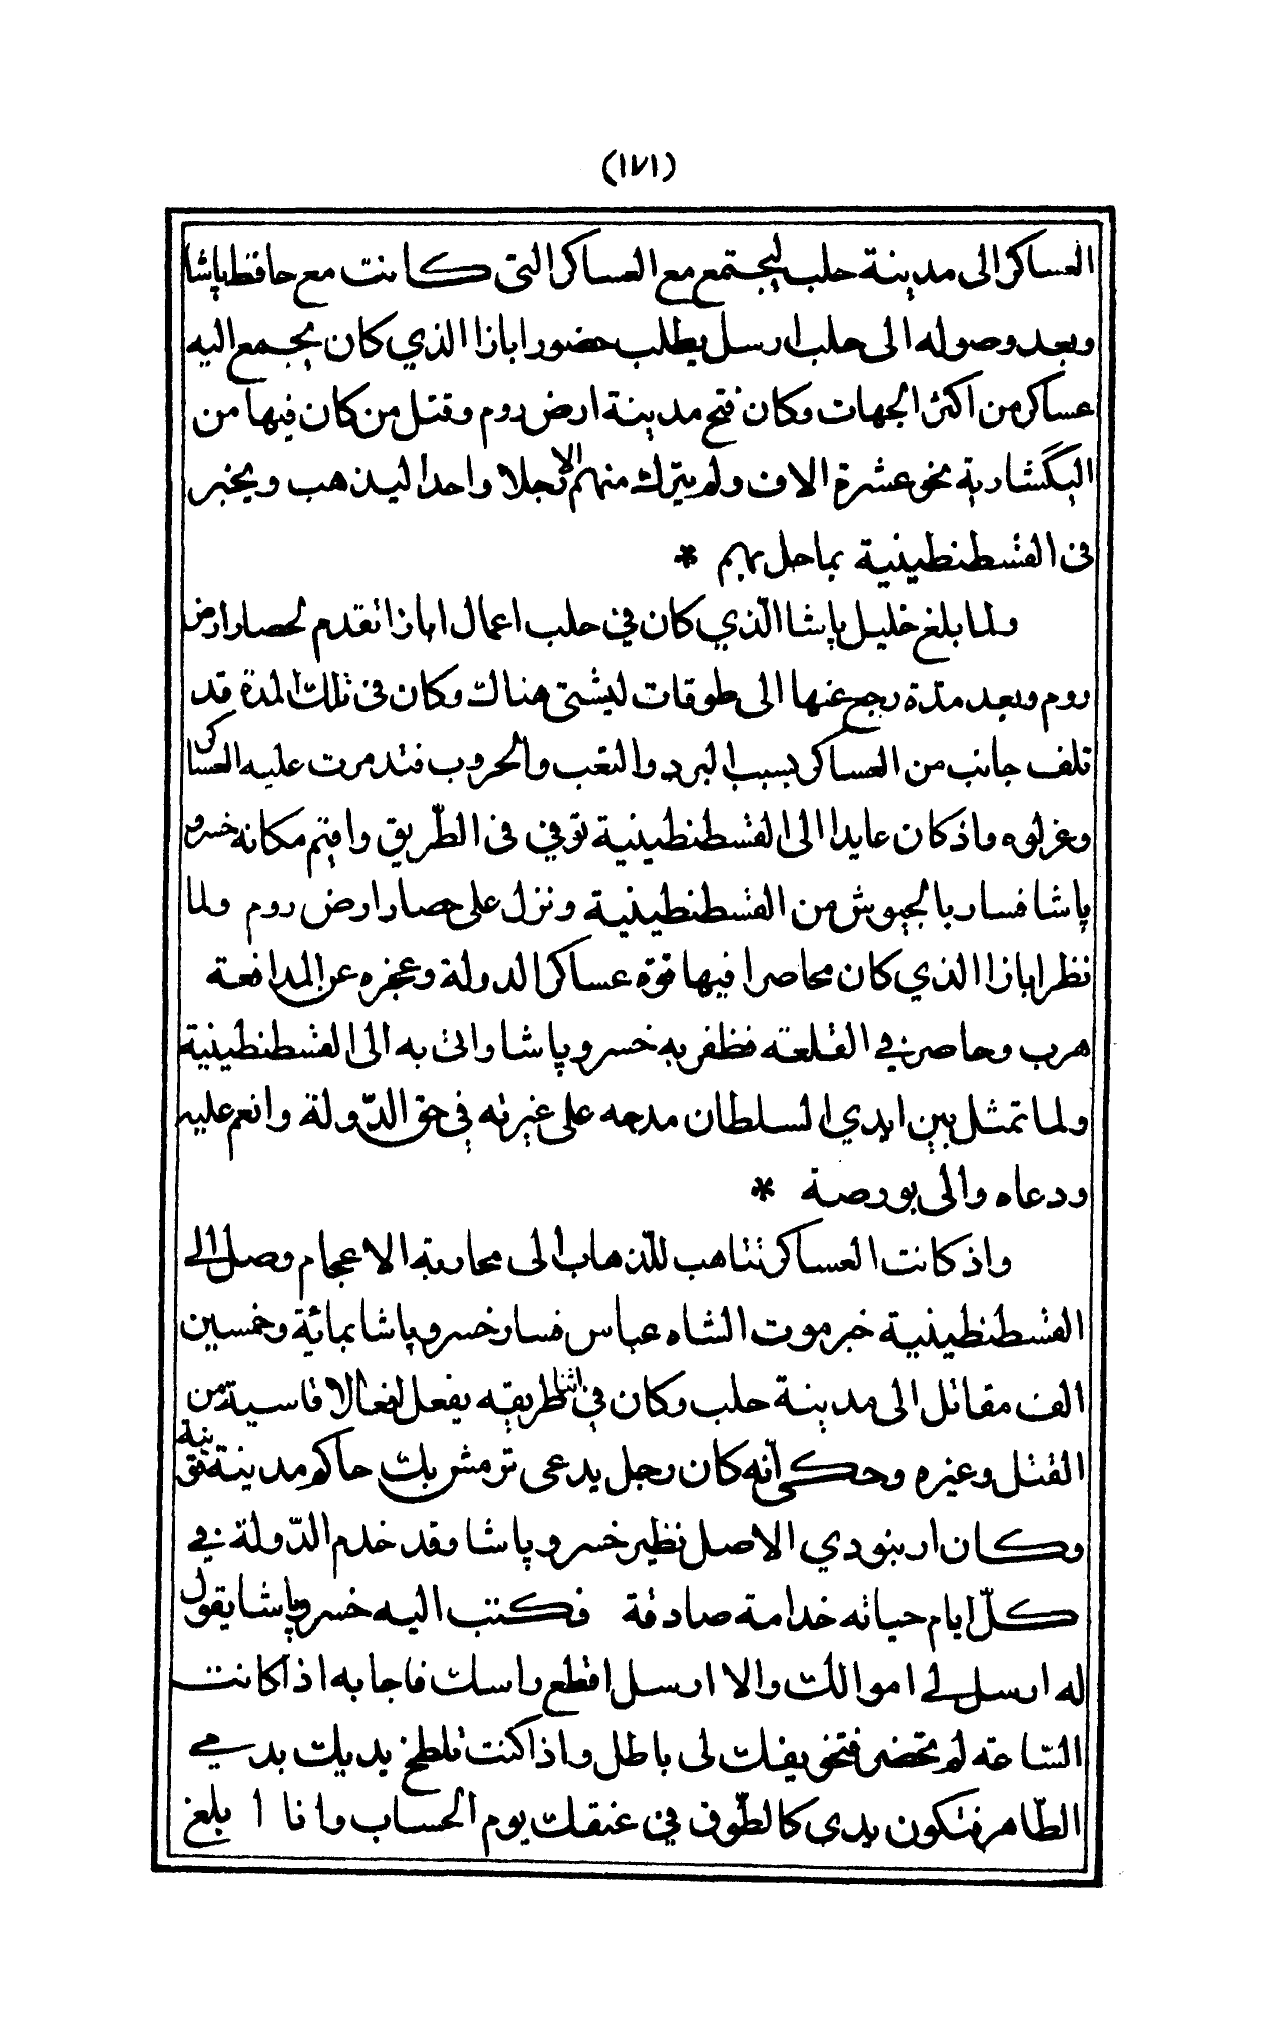 (١٧١)
العساكر الى مدينة حلب ليجتمع مع العساكر التي كانت مع حافظ پاشا
وبعد وصوله الى حلب ارسل يطلب حضور ابازا الذي كان يجمع اليه
عساكر من اكثر الجهات وكان فتح مدينة ارض روم وقتل من كان فيها من
اليكشارية نحو عشرة الاف ولم يترك منهم الا رجلا واحدا ليذهب ويخبر
في القسطنطينية بما حل بهم *
ولما بلغ خليل پاشا الّذي كان في حلب اعمال ابازا تقدم لحصار ارض
روم وبعد مدّة رجع عنها الى طوقات ليشتي هناك وكان في تلك المدة قد
تلف جانب من العساكر بسبب البرد والتعب والحروب فتدمرت عليه العساكر
وعزلوه واذ كان عايدا الى القسطنطينية توفي في الطّريق واقيم مكانه خسرو
پاشا فسار بالجيوش من القسطنطينية ونزل على حصار ارض روم ولما
نظر ابازا الذي كان محاصرا فيها قوة عساكر الدولة وعجزه عن المدافعة
هرب وحاصر في القلعة فظفر به خسرو پاشا واتى به الى القسطنطينية
ولما تمثل بين ايدي السلطان مدحه على غيرته في حق الدّولة وانعم عليه
ودعاه والى بورصة *
واذ كانت العساكر تتاهب للذهاب الى محاربة الاعجام وصل الى
القسطنطينية خبر موت الشاه عباس فسار خسرو پاشا بمائة وخمسين
الف مقاتل الى مدينة حلب وكان في اثنا طريقه يفعل افعالا قاسية من
القتل وغيره وحكي انّه كان رجل يدعى ترمش بك حاكم مدينة قونية
وكان ارنبودي الاصل نظير خسرو پاشا وقد خدم الدّولة في
كلّ ايام حياته خدامة صادقة فكتب اليه خسرو پاشا يقول
له ارسل لي اموالك والا ارسل اقطع راسك فاجابه اذا كانت
السّاعة لم تحضر فتخويفك لي باطل واذا كنت تلطخ يديك بدمي
الطّاهر فتكون يدي كالطّوق في عنقك يوم الحساب وانا ابلغ